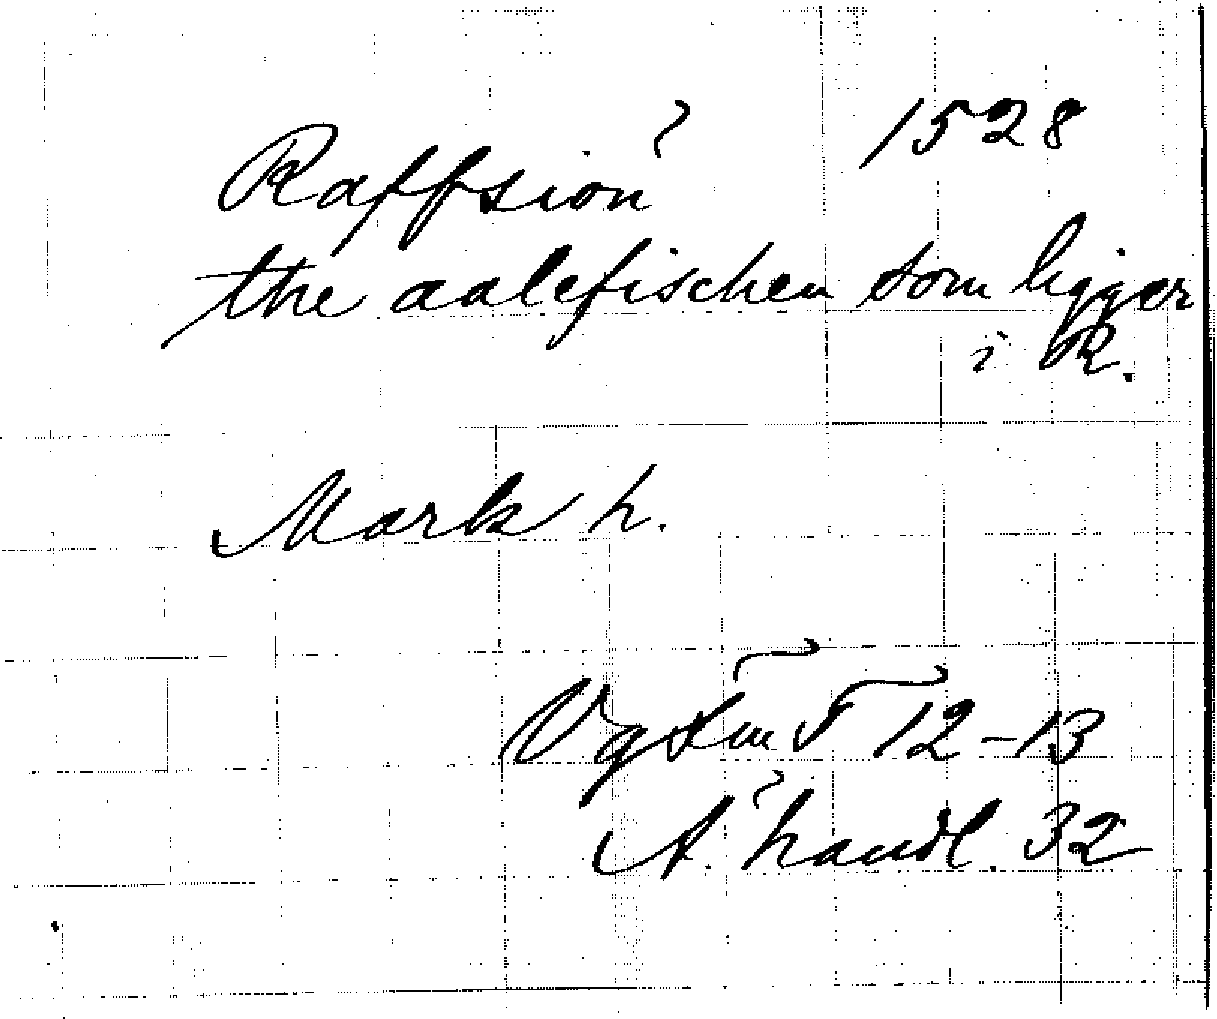 Raffsion 1528
the aalefischen som ligger
i R.
Mark h.
VgFmT 12-13
A. handl. 32